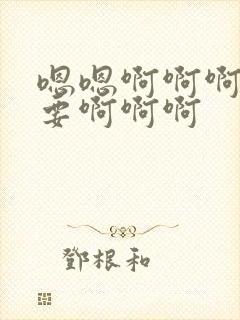 嗯嗯啊啊啊
要啊啊啊
鄧根和